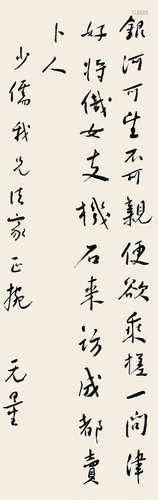 銀河可望不可親便欲乘槎一問津
好將織女支機石来訪成都賣
卜人
少儒我兄法家正捥
元量